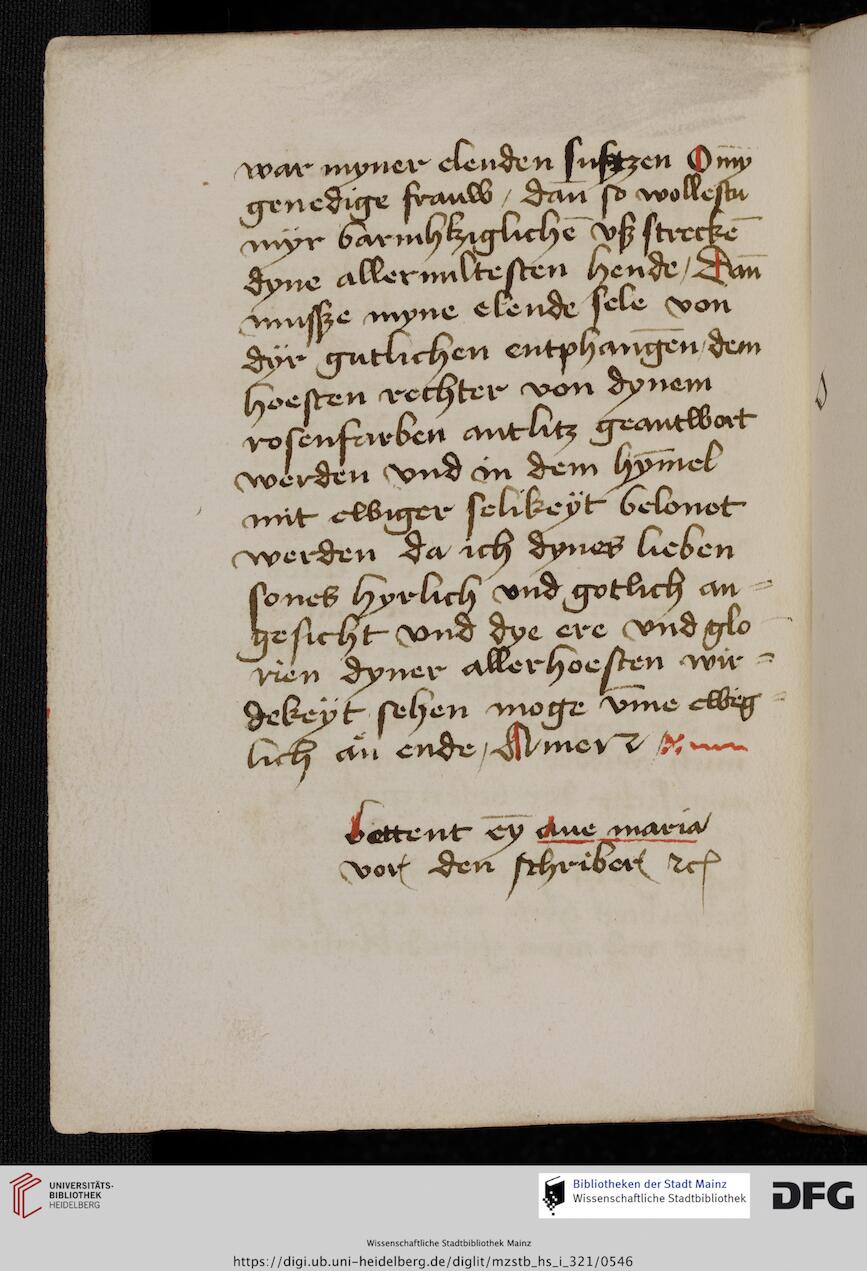 war myner elenden suftzen O my̅
genedige frauw / dan̅ so wollestu
myr barmh̕tziglichē vß streckē
dyne allermiltesten hende / Dan̅
musße myne elende sele von
dÿr gutlichen entphangen / dem
hoesten rechter von dynem
rosenfarben antlitz geantwort
werden vnd in dem hy̅mel
mit ewiger selikeÿt belonet
werden da ich dynes lieben
sones hyrlich vnd gotlich an=
gesicht vnd dye ere vnd glo=
rien dyner allerhoesten wir=
dekeÿt sehen moge v̅me eweg=
lich an ende / Amen
bettent ey̅ aue maria
vor den schriber ⁊c
UNIVERSITÄTS-
BIBLIOTHEK
HEIDELBERG
Bibliotheken der Stadt Mainz
Wissenschaftliche Stadtbibliothek
DFG
Wissenschaftliche Stadtbibliothek Mainz
https://digi.ub.uni-heidelberg.de/diglit/mzstb_hs_i_321/0546